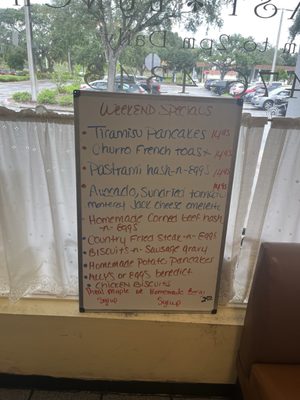 to 2pm Da
WEEKEND SPECIALS
• Tiramisu Pancakes 14.95
• Churro French toast 14.95
• Pastrami hash-n-Eggs 14.95
• Avocado, Sundried tomato 14.95
monterey Jack cheese omelette
• Homemade Corned beef hash
-n- Eggs
• Country Fried Steak-n-Eggs
• Biscuits-n-Sausage gravy
• Homemade Potato Pancakes
• Ally's or Eggs benedict
• Chicken Biscuits
Maple or Homemade
Syrup Syrup